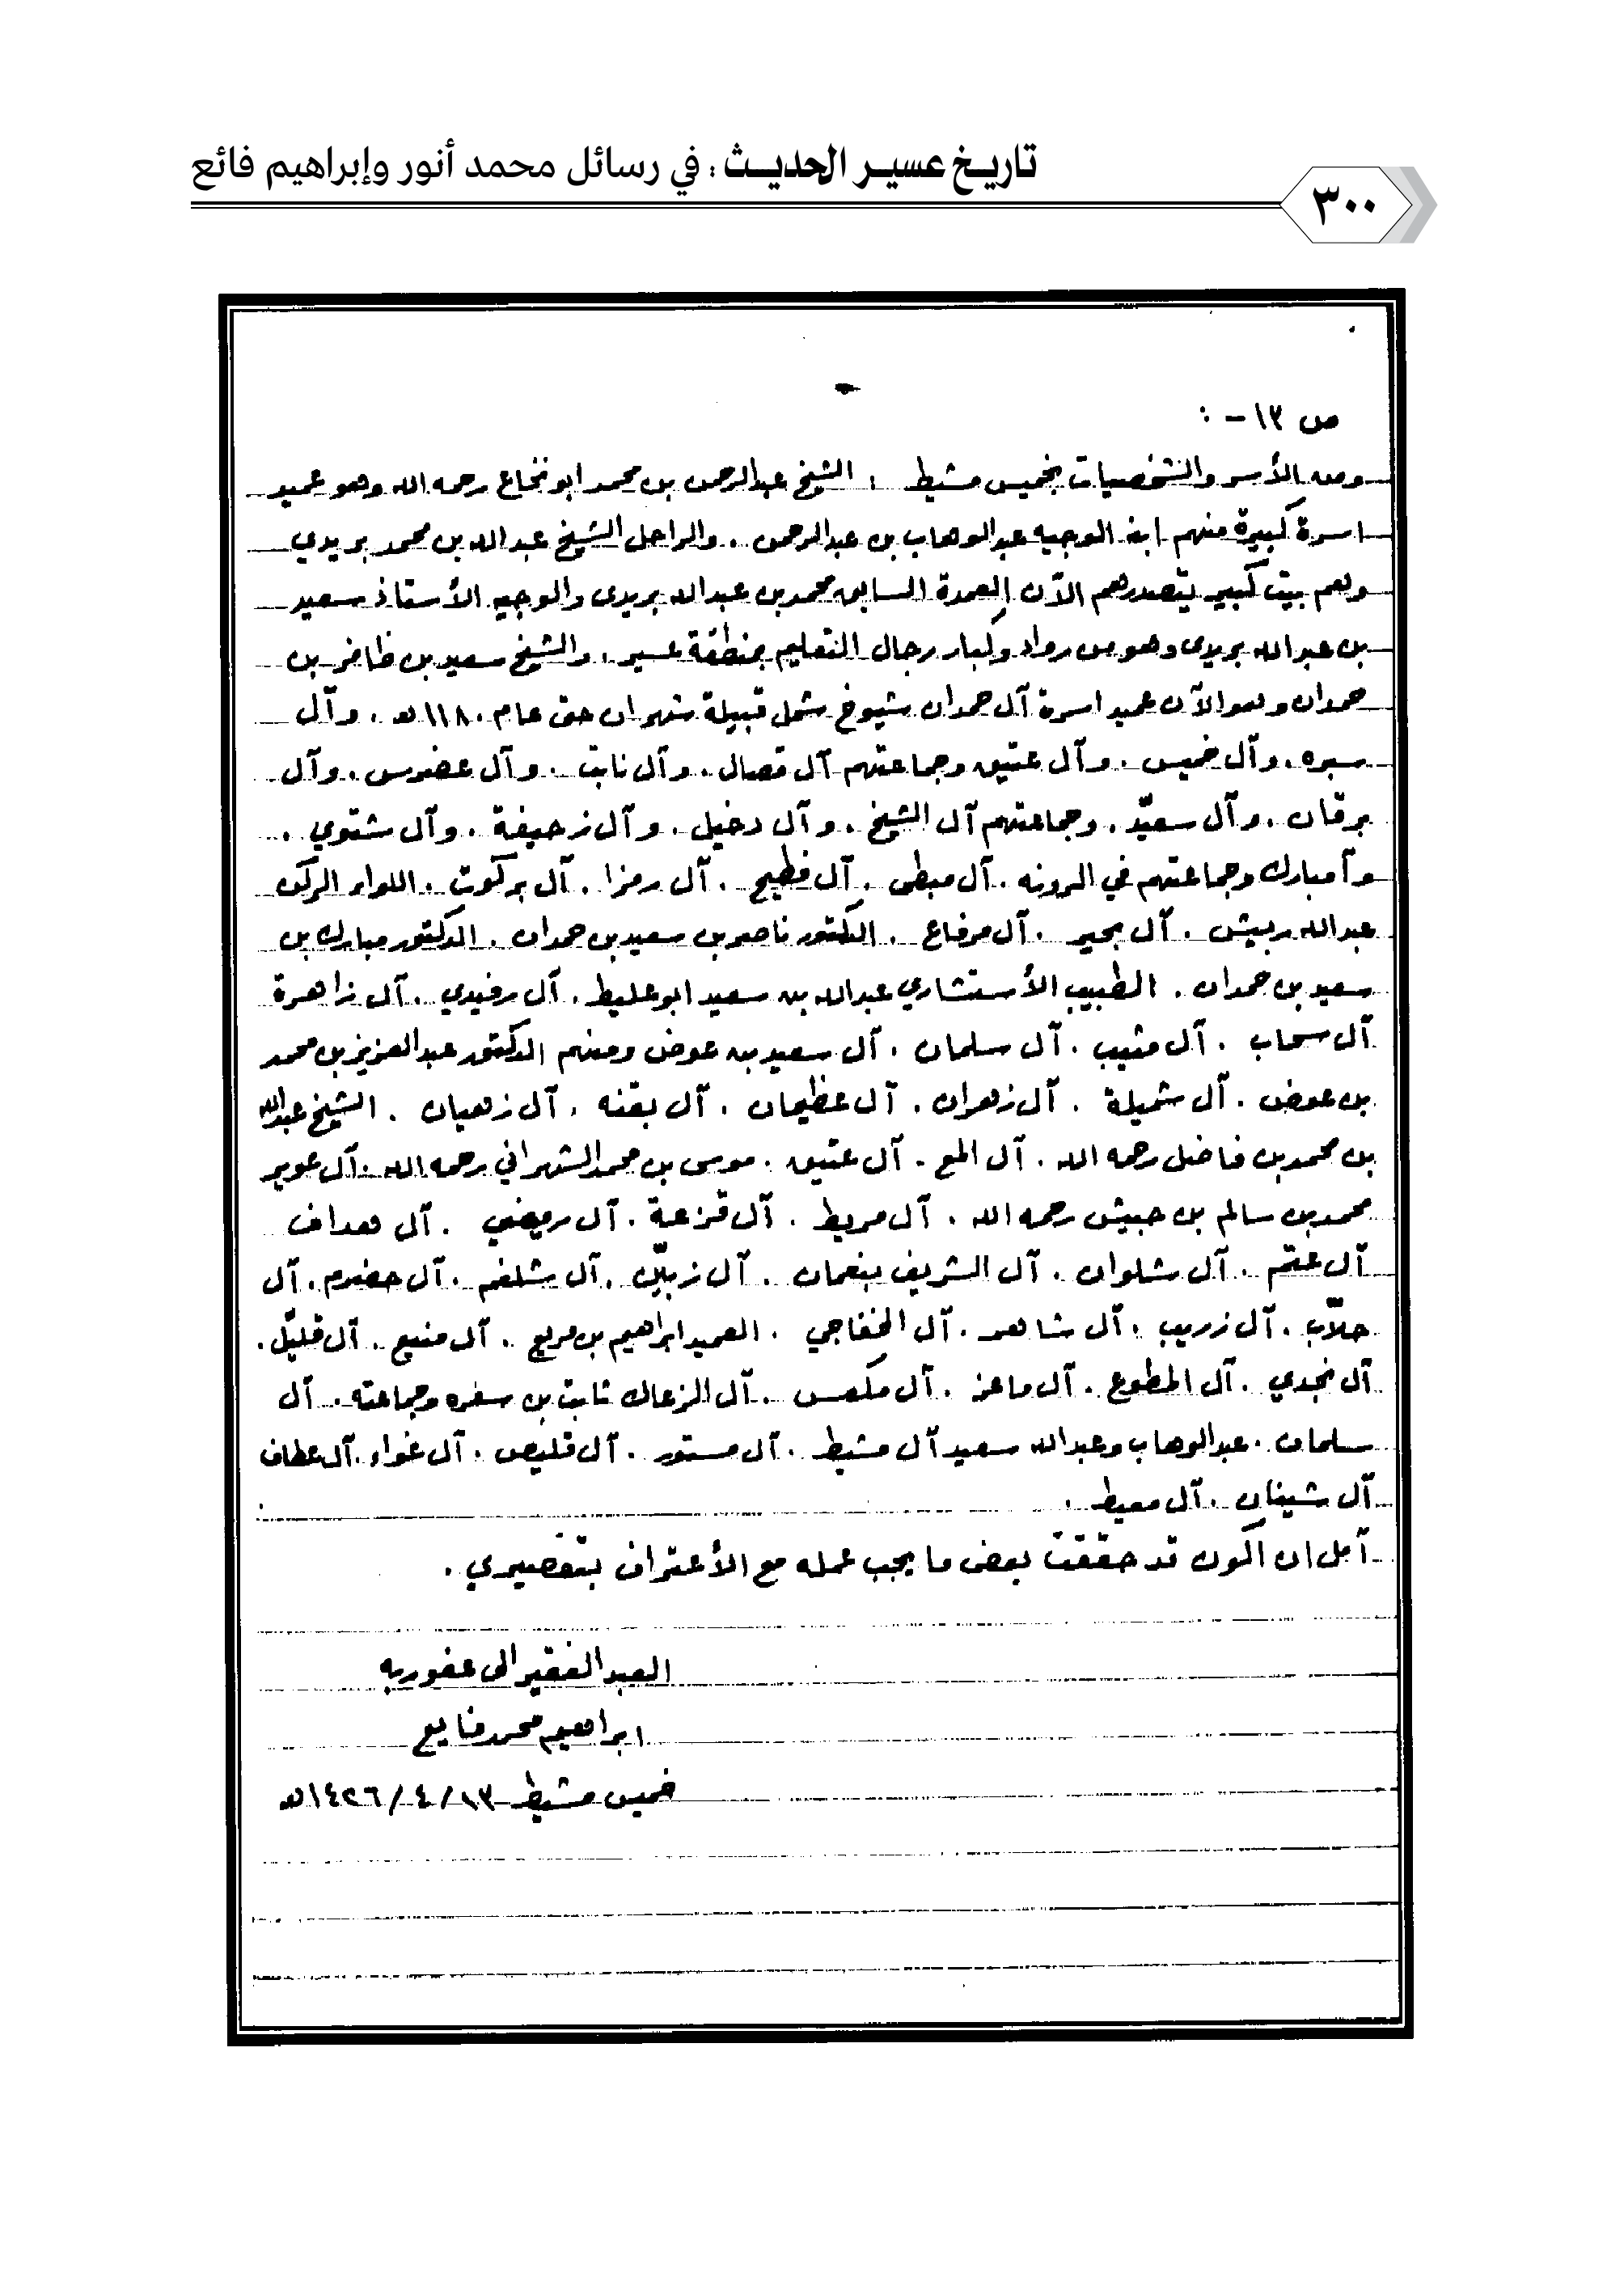 تاريخ عسير الحديث : في رسائل محمد أنور وإبراهيم فائع
٣٠٠
ص ١٣ - :
ومن الأسر والشخصيات بخميس مشيط : الشيخ عبدالرحمن بن محمد ابو نخاع رحمه الله وهو عميد
اسرة كبيرة منهم ابنه الوجيه عبدالوهاب بن عبدالرحمن . والراحل الشيخ عبدالله بن محمد بريدي
ولهم بيت كبير يتصدرهم الآن العمدة السابق محمد بن عبدالله بريدي والوجيه الأستاذ سعيد
بن عبدالله بريدي وهو من رواد وكبار رجال التعليم بمنطقة عسير . والشيخ سعيد بن ظافر بن
حمدان وهو الآن عميد اسرة آل حمدان شيوخ شمل قبيلة شهران حتى عام ١١٨٠هـ . وآل
سبره . وآل خميس . وآل عتيق وجماعتهم آل قصال . وآل نابت . وآل عضوس . وآل
برقان . وآل سعيّد . وجماعتهم آل الشيخ . وآل دخيل . وآل زحيفة . وآل شتوي .
وآ مبارك وجماعتهم في الرونه . آل مبطي . آل فطيح . آل رمزا . آل بركوت . اللواء الركن
عبدالله ربيش . آل بحير . آل مرفاع . الدكتور ناصر بن سعيد بن حمدان . الدكتور مبارك بن
سعيد بن حمدان . الطبيب الأستشاري عبدالله بن سعيد ابو عليط . آل رفيدي . آل زاهرة
آل سحاب . آل مثيب . آل سلمان . آل سعيد بن عوض ومنهم الدكتور عبدالعزيز بن محمد
بن عوض . آل شميلة . آل زهران . آل عظيمان . آل بقنه . آل زهيان . الشيخ عبدالله
بن محمد بن فاضل رحمه الله . آل المع . آل عتيق . موسى بن محمد الشهراني رحمه الله . آل عوير
محمد بن سالم بن حبيش رحمه الله . آل مريط . آل قزعة . آل رميضي . آل هداف
آل عتم . آل شلوان . آل الشريف بنعمان . آل زبيّن . آل شلغم . آل حضرم . آل
حلّاب . آل زريب . آل شاهر . آل الخفاجي . العميد ابراهيم بن مريع . آل منيع . آل قليّل .
آل نجدي . آل المطوع . آل ماعز . آل ملهس . آل الزعاك ثابت بن سفره وجماعته . آل
سلمان . عبدالوهاب وعبدالله سعيد آل مشيط . آل مستور . آل قليص . آل غواء . آل عطاف
آل شينان . آل معيط .
آمل ان اكون قد حققت بعض ما يجب عمله مع الأعتراف بتقصيري .
العبد الفقير الى عفو ربه
ابراهيم محمد فايع
خميس مشيط ١٣/٤/١٤٢٦هـ